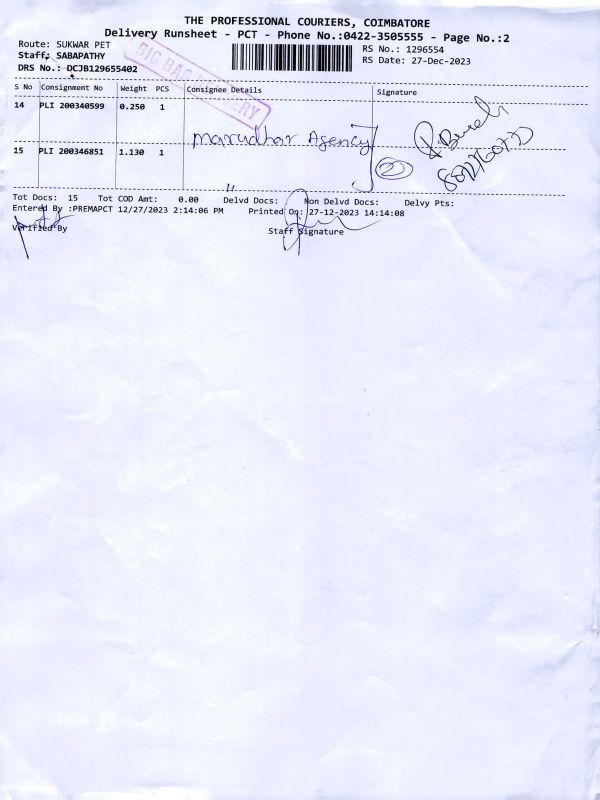 THE PROFESSIONAL COURIERS, COIMBATORE
Delivery Runsheet - PCT - Phone No.:0422-3505555 - Page No.:2
Route: SUKWAR PET
RS No.: 1296554
Staff: SABAPATHY
RS Date: 27-Dec-2023
DRS No.: DCJB129655402
BIG BAG DELIVERY
S No Consignment No Weight PCS Consignee Details Signature
14 PLI 200340599 0.250 1
Marudhar Agency
15 PLI 200346851 1.130 1
2
Tot Docs: 15 Tot COD Amt: 0.00 Delvd Docs: Non Delvd Docs: Delvy Pts:
Entered By :PREMAPCT 12/27/2023 2:14:06 PM Printed On: 27-12-2023 14:14:08
Verified By Staff Signature